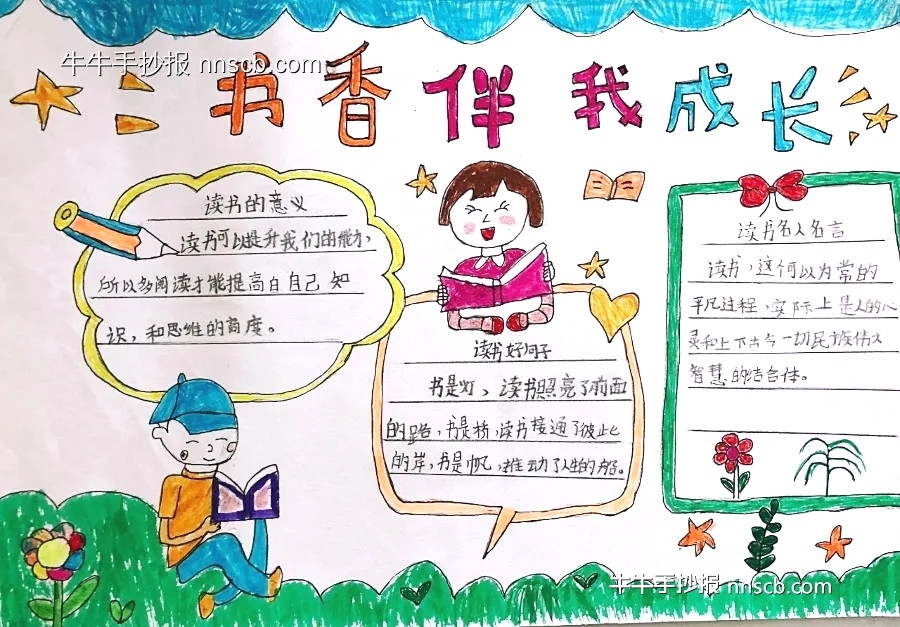 牛牛手抄报 nnscb.com
书香伴我成长
读书的意义
读书可以提升我们的能力,
所以多阅读才能提高自自己 知
识,和思维的高度。
读书好句子
书是灯、读书照亮了前面
的路,书是桥,读书接通了彼此
的岸,书是帆,推动了人生的船。
读书名人名言
读书,这个何以为常的
平凡过程,实际上是人的心
灵和上下古今一切民族伟大
智慧的结合体。
牛牛手抄报 nnscb.com